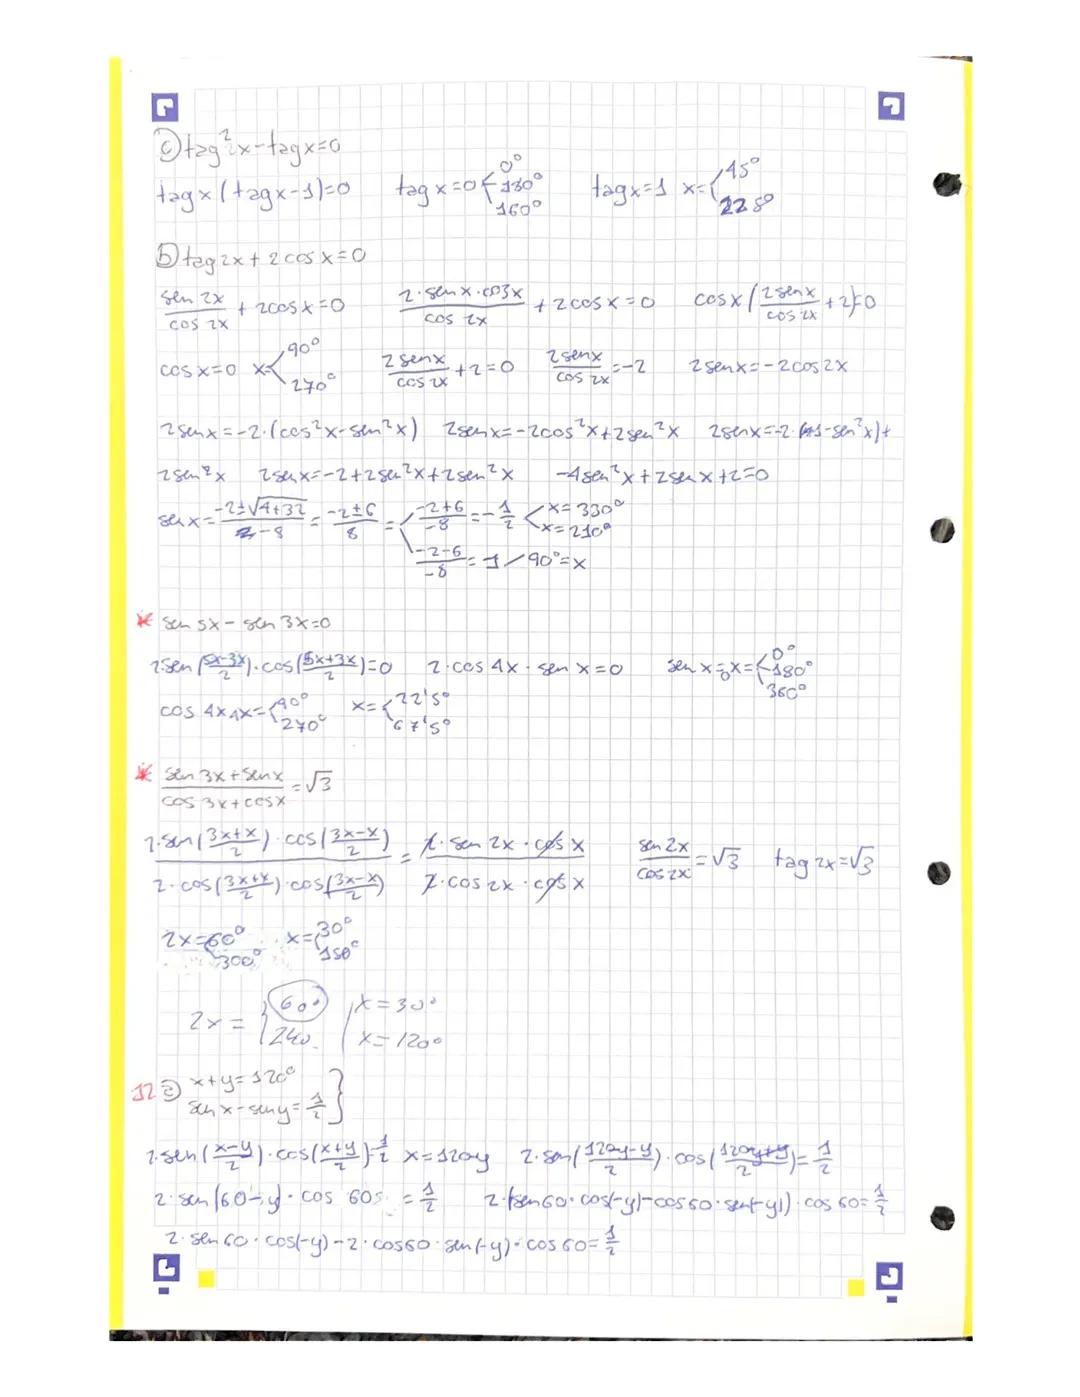 c) tag²x - tag x = 0
tag x (tag x - 1) = 0    tag x = 0 < 0° 180° 160°    tag x = 1    x = < 45° 225°
b) tag 2x + 2 cos x = 0
sen 2x / cos 2x + 2 cos x = 0    2·sen x·cos x / cos 2x + 2 cos x = 0    cos x (2 sen x / cos 2x + 2) = 0
cos x = 0    x < 90° 270°    2 sen x / cos 2x + 2 = 0    2 sen x / cos 2x = -2    2 sen x = -2 cos 2x
2 sen x = -2·(cos²x - sen²x)    2 sen x = -2cos²x + 2 sen²x    2 sen x = -2·(1 - sen²x) +
2 sen²x    2 sen x = -2 + 2 sen²x + 2 sen²x    -4 sen²x + 2 sen x + 2 = 0
sen x = -2 ± √4+32 / -8 = -2 ± 6 / 8 = < -2+6 / -8 = -1/2 < x = 330° x = 210°
-2-6 / -8 = 1 / 90° = x
* sen 5x - sen 3x = 0
2·sen (5x-3x / 2)·cos (5x+3x / 2) = 0    2·cos 4x·sen x = 0    sen x = 0    x = < 0° 180° 360°
cos 4x    4x = < 90° 270°    x = < 22'5° 67'5°
* sen 3x + sen x / cos 3x + cos x = √3
2·sen (3x+x / 2)·cos (3x-x / 2) / 2·cos (3x+x / 2)·cos (3x-x / 2) = 2·sen 2x·cos x / 2·cos 2x·cos x    sen 2x / cos 2x = √3    tag 2x = √3
2x = 60° 300°    x = < 30° 150°
2x = { 60° 240    x = 30° x = 120°
12 a) x + y = 120°
sen x - sen y = 1/2 }
2·sen (x-y / 2)·cos (x+y / 2) = 1/2    x = 120-y    2·sen (120-y-y / 2)·cos (120-y+y / 2) = 1/2
2·sen (60-y)·cos 60 = 1/2    2·(sen 60·cos(-y) - cos 60·sen(-y))·cos 60 = 1/2
2·sen 60·cos(-y) - 2·cos 60·sen(-y)·cos 60 = 1/2